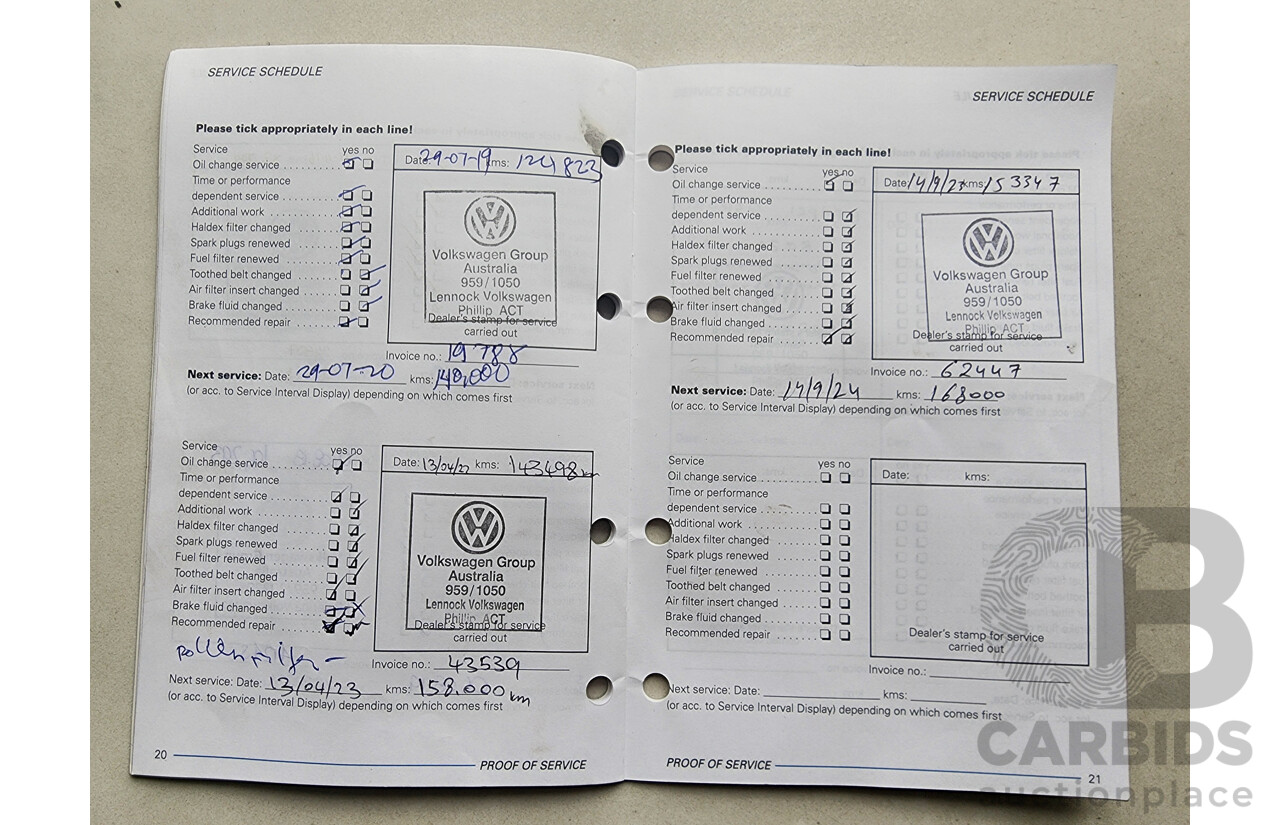 SERVICE SCHEDULE
Please tick appropriately in each line!
Service yes no
Oil change service
Time or performance
dependent service
Additional work
Haldex filter changed
Spark plugs renewed
Fuel filter renewed
Toothed belt changed
Air filter insert changed
Brake fluid changed
Recommended repair
Date: 29-07-19 kms: 124823
Volkswagen Group
Australia
959/1050
Lennock Volkswagen
Phillip ACT
Dealer's stamp for service
carried out
Invoice no.: 19788
Next service: Date: 29-07-20 kms: 140,000
(or acc. to Service Interval Display) depending on which comes first
Service yes no
Oil change service
Time or performance
dependent service
Additional work
Haldex filter changed
Spark plugs renewed
Fuel filter renewed
Toothed belt changed
Air filter insert changed
Brake fluid changed
Recommended repair
Date: 13/04/22 kms: 143498km
Volkswagen Group
Australia
959/1050
Lennock Volkswagen
Phillip ACT
Dealer's stamp for service
carried out
pollen filter -
Invoice no.: 43539
Next service: Date: 13/04/23 kms: 158,000 km
(or acc. to Service Interval Display) depending on which comes first
20 PROOF OF SERVICE
SERVICE SCHEDULE
Please tick appropriately in each line!
Service yes no
Oil change service
Time or performance
dependent service
Additional work
Haldex filter changed
Spark plugs renewed
Fuel filter renewed
Toothed belt changed
Air filter insert changed
Brake fluid changed
Recommended repair
Date: kms: 153347
Volkswagen Group
Australia
959/1050
Lennock Volkswagen
Phillip ACT
Dealer's stamp for service
carried out
Invoice no.: 62447
Next service: Date: 14/9/24 kms: 168000
(or acc. to Service Interval Display) depending on which comes first
Service yes no
Oil change service
Time or performance
dependent service
Additional work
Haldex filter changed
Spark plugs renewed
Fuel filter renewed
Toothed belt changed
Air filter insert changed
Brake fluid changed
Recommended repair
Date: kms:
Dealer's stamp for service
carried out
Invoice no.:
Next service: Date: kms:
(or acc. to Service Interval Display) depending on which comes first
PROOF OF SERVICE 21
CB
CARBIDS
auctionplace